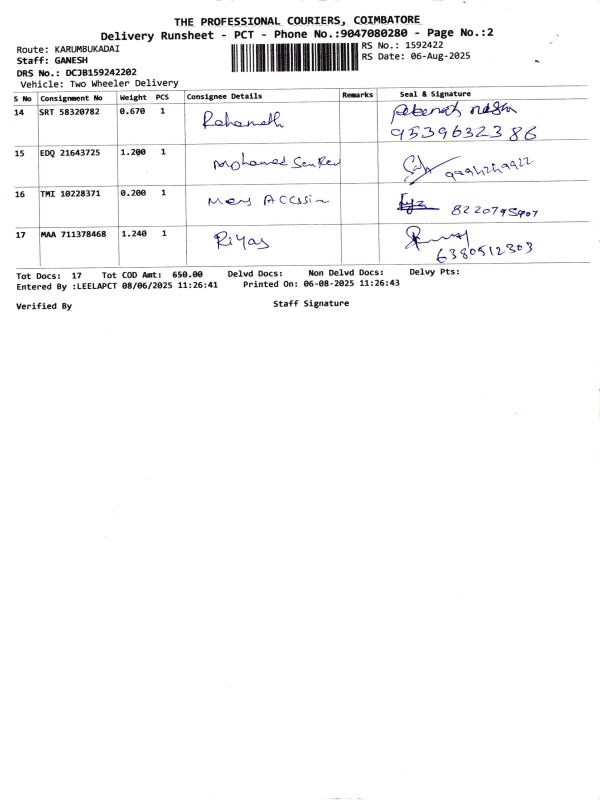 THE PROFESSIONAL COURIERS, COIMBATORE
Delivery Runsheet - PCT - Phone No.:9047080280 - Page No.:2
Route: KARUMBUKADAI
RS No.: 1592422
Staff: GANESH
RS Date: 06-Aug-2025
DRS No.: DCJB159242202
Vehicle: Two Wheeler Delivery
S No Consignment No Weight PCS Consignee Details Remarks Seal & Signature
14 SRT 58320782 0.670 1 Rahamath
9539632386
15 EDQ 21643725 1.200 1 Mohamed
16 TMI 10228371 0.200 1 8220795907
17 MAA 711378468 1.240 1 Riyas
6380512303
Tot Docs: 17 Tot COD Amt: 650.00 Delvd Docs: Non Delvd Docs: Delvy Pts:
Entered By :LEELAPCT 08/06/2025 11:26:41 Printed On: 06-08-2025 11:26:43
Verified By Staff Signature